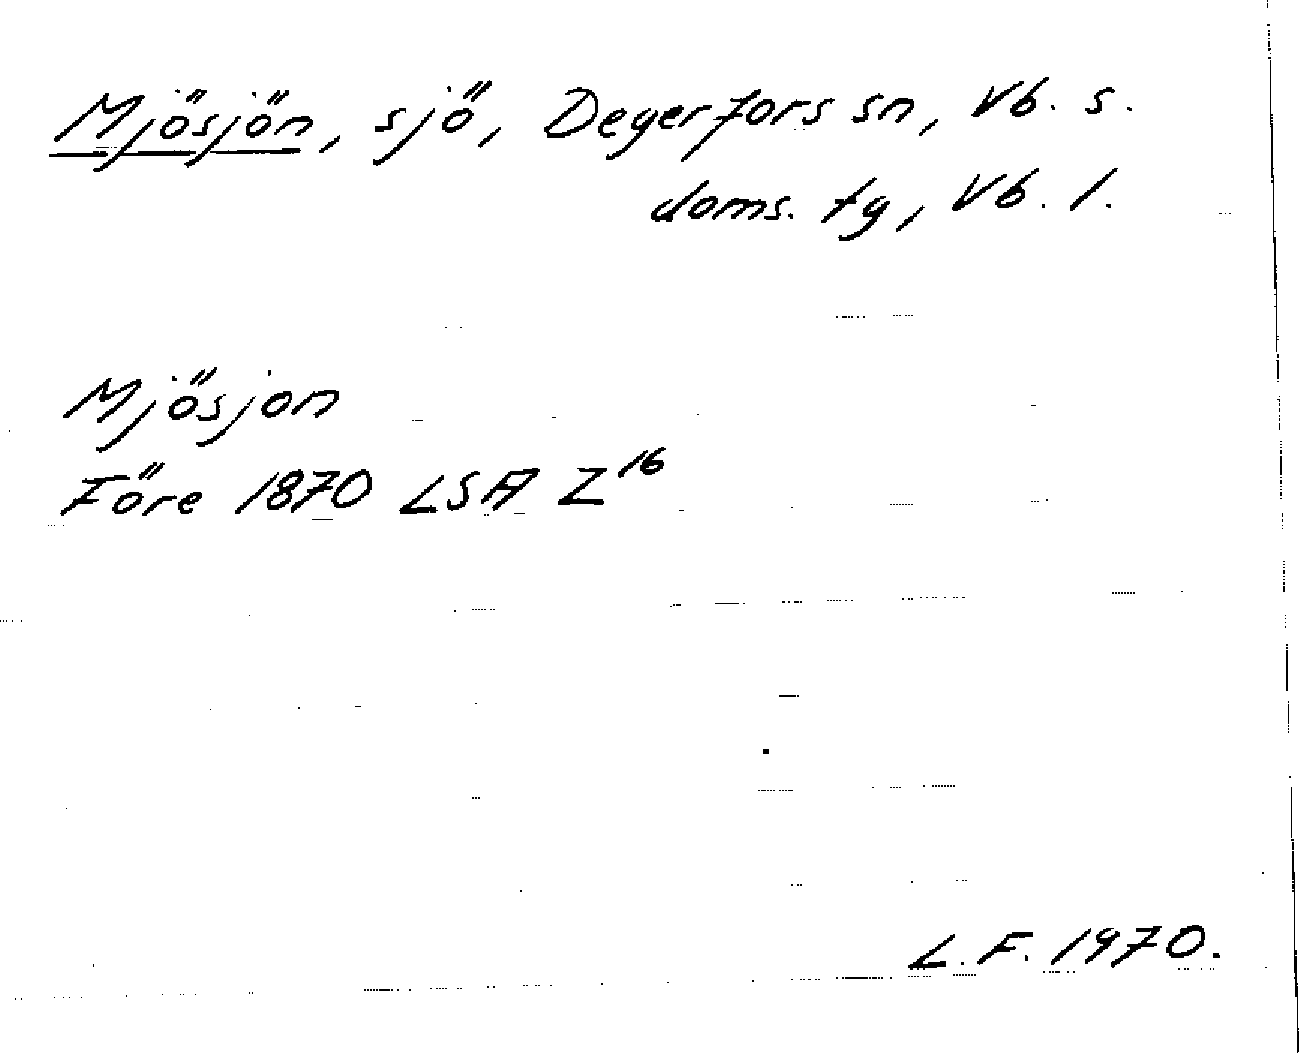 Mjösjön, sjö, Degerfors sn, Vb. s.
doms. tg, Vb. l.
Mjösjon
Före 1870 LSA Z16
L.F. 1970.